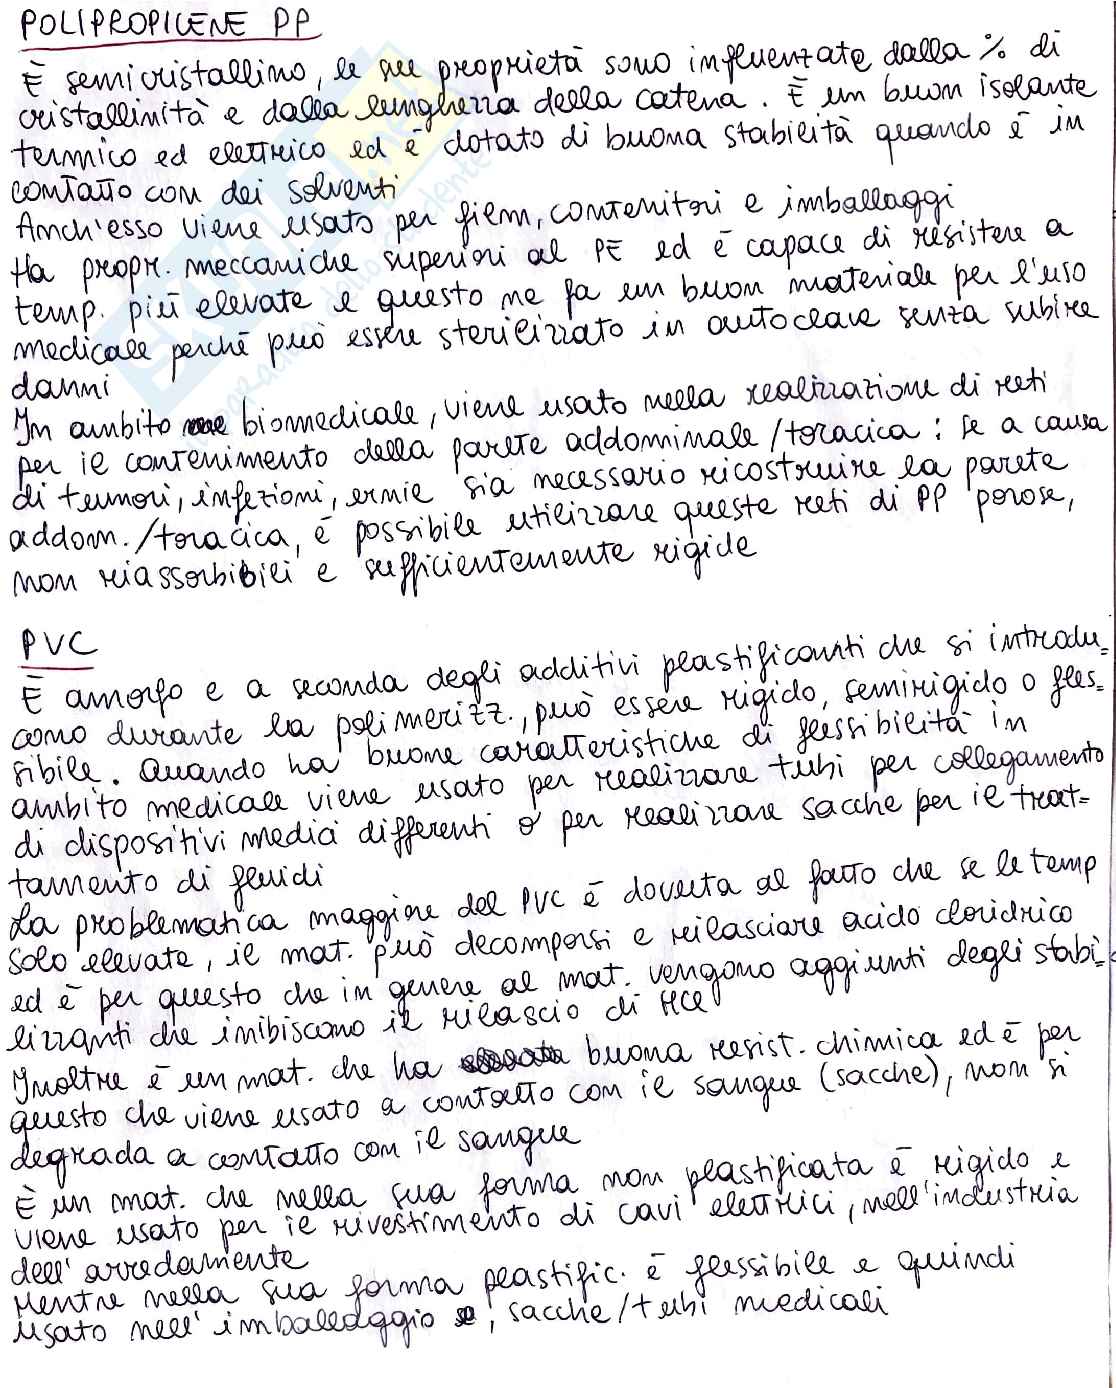 POLIPROPILENE PP
È semicristallino, le sue proprietà sono influenzate dalla % di
cristallinità e dalla lunghezza della catena. È un buon isolante
termico ed elettrico ed è dotato di buona stabilità quando è in
contatto con dei solventi
Anch'esso viene usato per film, contenitori e imballaggi
Ha propr. meccaniche superiori al PE ed è capace di resistere a
temp. più elevate e questo ne fa un buon materiale per l'uso
medicale perché può essere sterilizzato in autoclave senza subire
danni
In ambito biomedicale, viene usato nella realizzazione di reti
per il contenimento della parete addominale/toracica: se a causa
di tumori, infezioni, ernie sia necessario ricostruire la parete
addom./toracica, è possibile utilizzare queste reti di PP porose,
non riassorbibili e sufficientemente rigide
PVC
È amorfo e a seconda degli additivi plastificanti che si introdu=
cono durante la polimerizz., può essere rigido, semirigido o fles=
sibile. Quando ha buone caratteristiche di flessibilità in
ambito medicale viene usato per realizzare tubi per collegamento
di dispositivi medici differenti o per realizzare sacche per il trat=
tamento di fluidi
La problematica maggiore del PVC è dovuta al fatto che se le temp
solo elevate, il mat. può decomporsi e rilasciare acido cloridrico
ed è per questo che in genere al mat. vengono aggiunti degli stabi=
lizzanti che inibiscono il rilascio di HCl
Inoltre è un mat. che ha buona resist. chimica ed è per
questo che viene usato a contatto con il sangue (sacche), non si
degrada a contatto con il sangue
È un mat. che nella sua forma non plastificata è rigido e
viene usato per il rivestimento di cavi elettrici, nell'industria
dell'arredamente
Mentre nella sua forma plastific. è flessibile e quindi
usato nell'imballaggio, sacche/tubi medicali